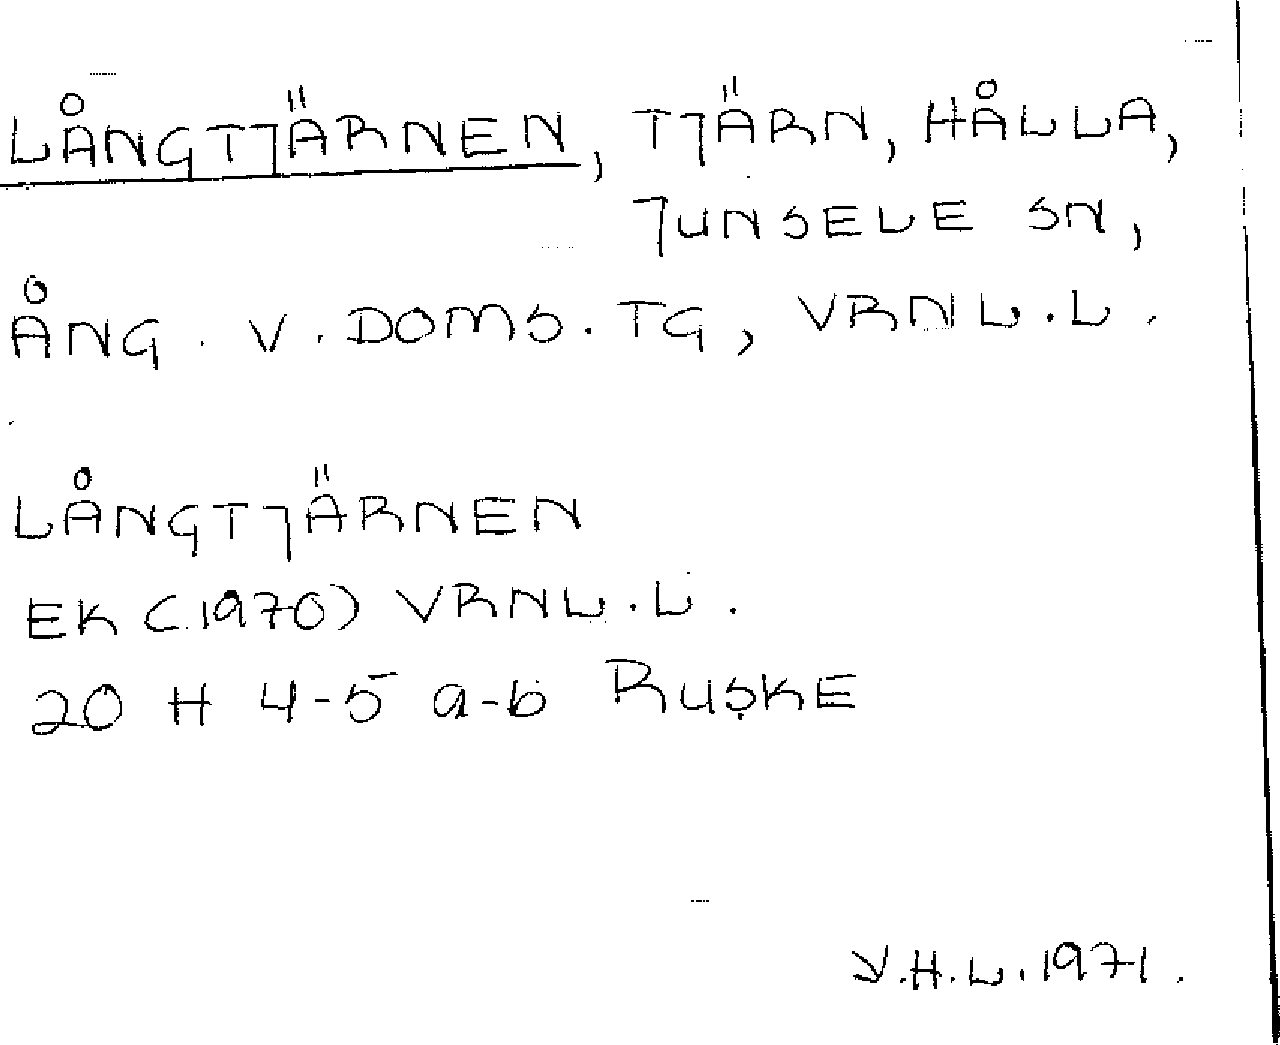 LÅNGTJÄRNEN, TJÄRN, HÅLLA,
JUNSELE SN,
ÅNG. V. DOMS. TG, VRNL.L.
LÅNGTJÄRNEN
EK (1970) VRNL.L.
20 H 4-5 a-b RUSKE
Y.H.L. 1971.